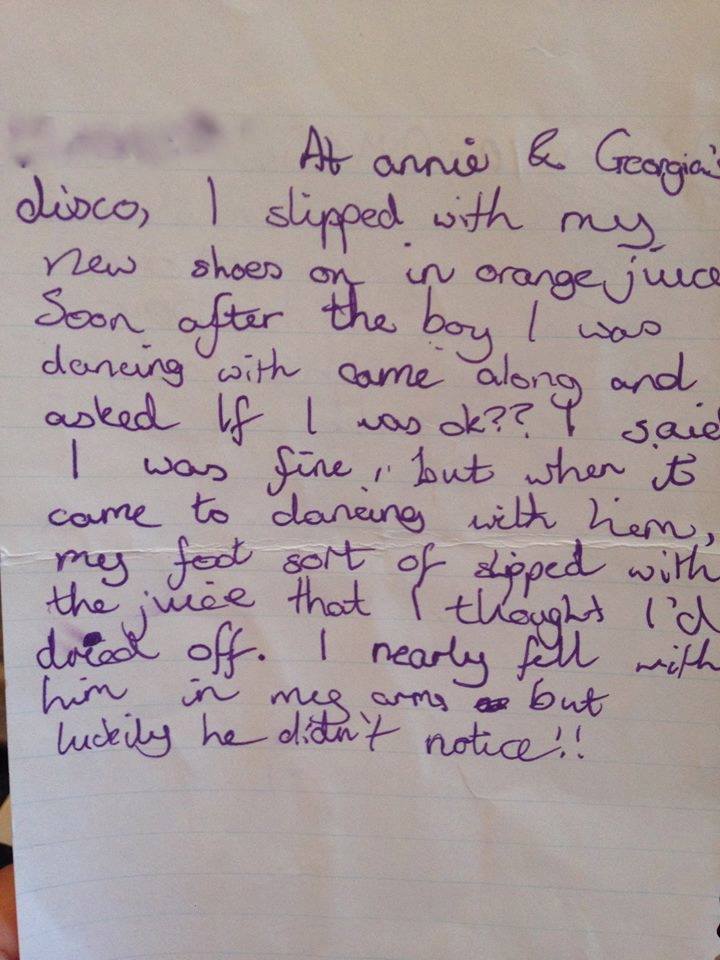 At annie & Georgia's
disco, I slipped with my
new shoes on in orange juice
Soon after the boy I was
dancing with came along and
asked If I was ok?? I said
I was fine, but when it
came to dancing with him,
my foot sort of slipped with
the juice that I thought I'd
dried off. I nearly fell with
him in my arms but
luckily he didn't notice!!